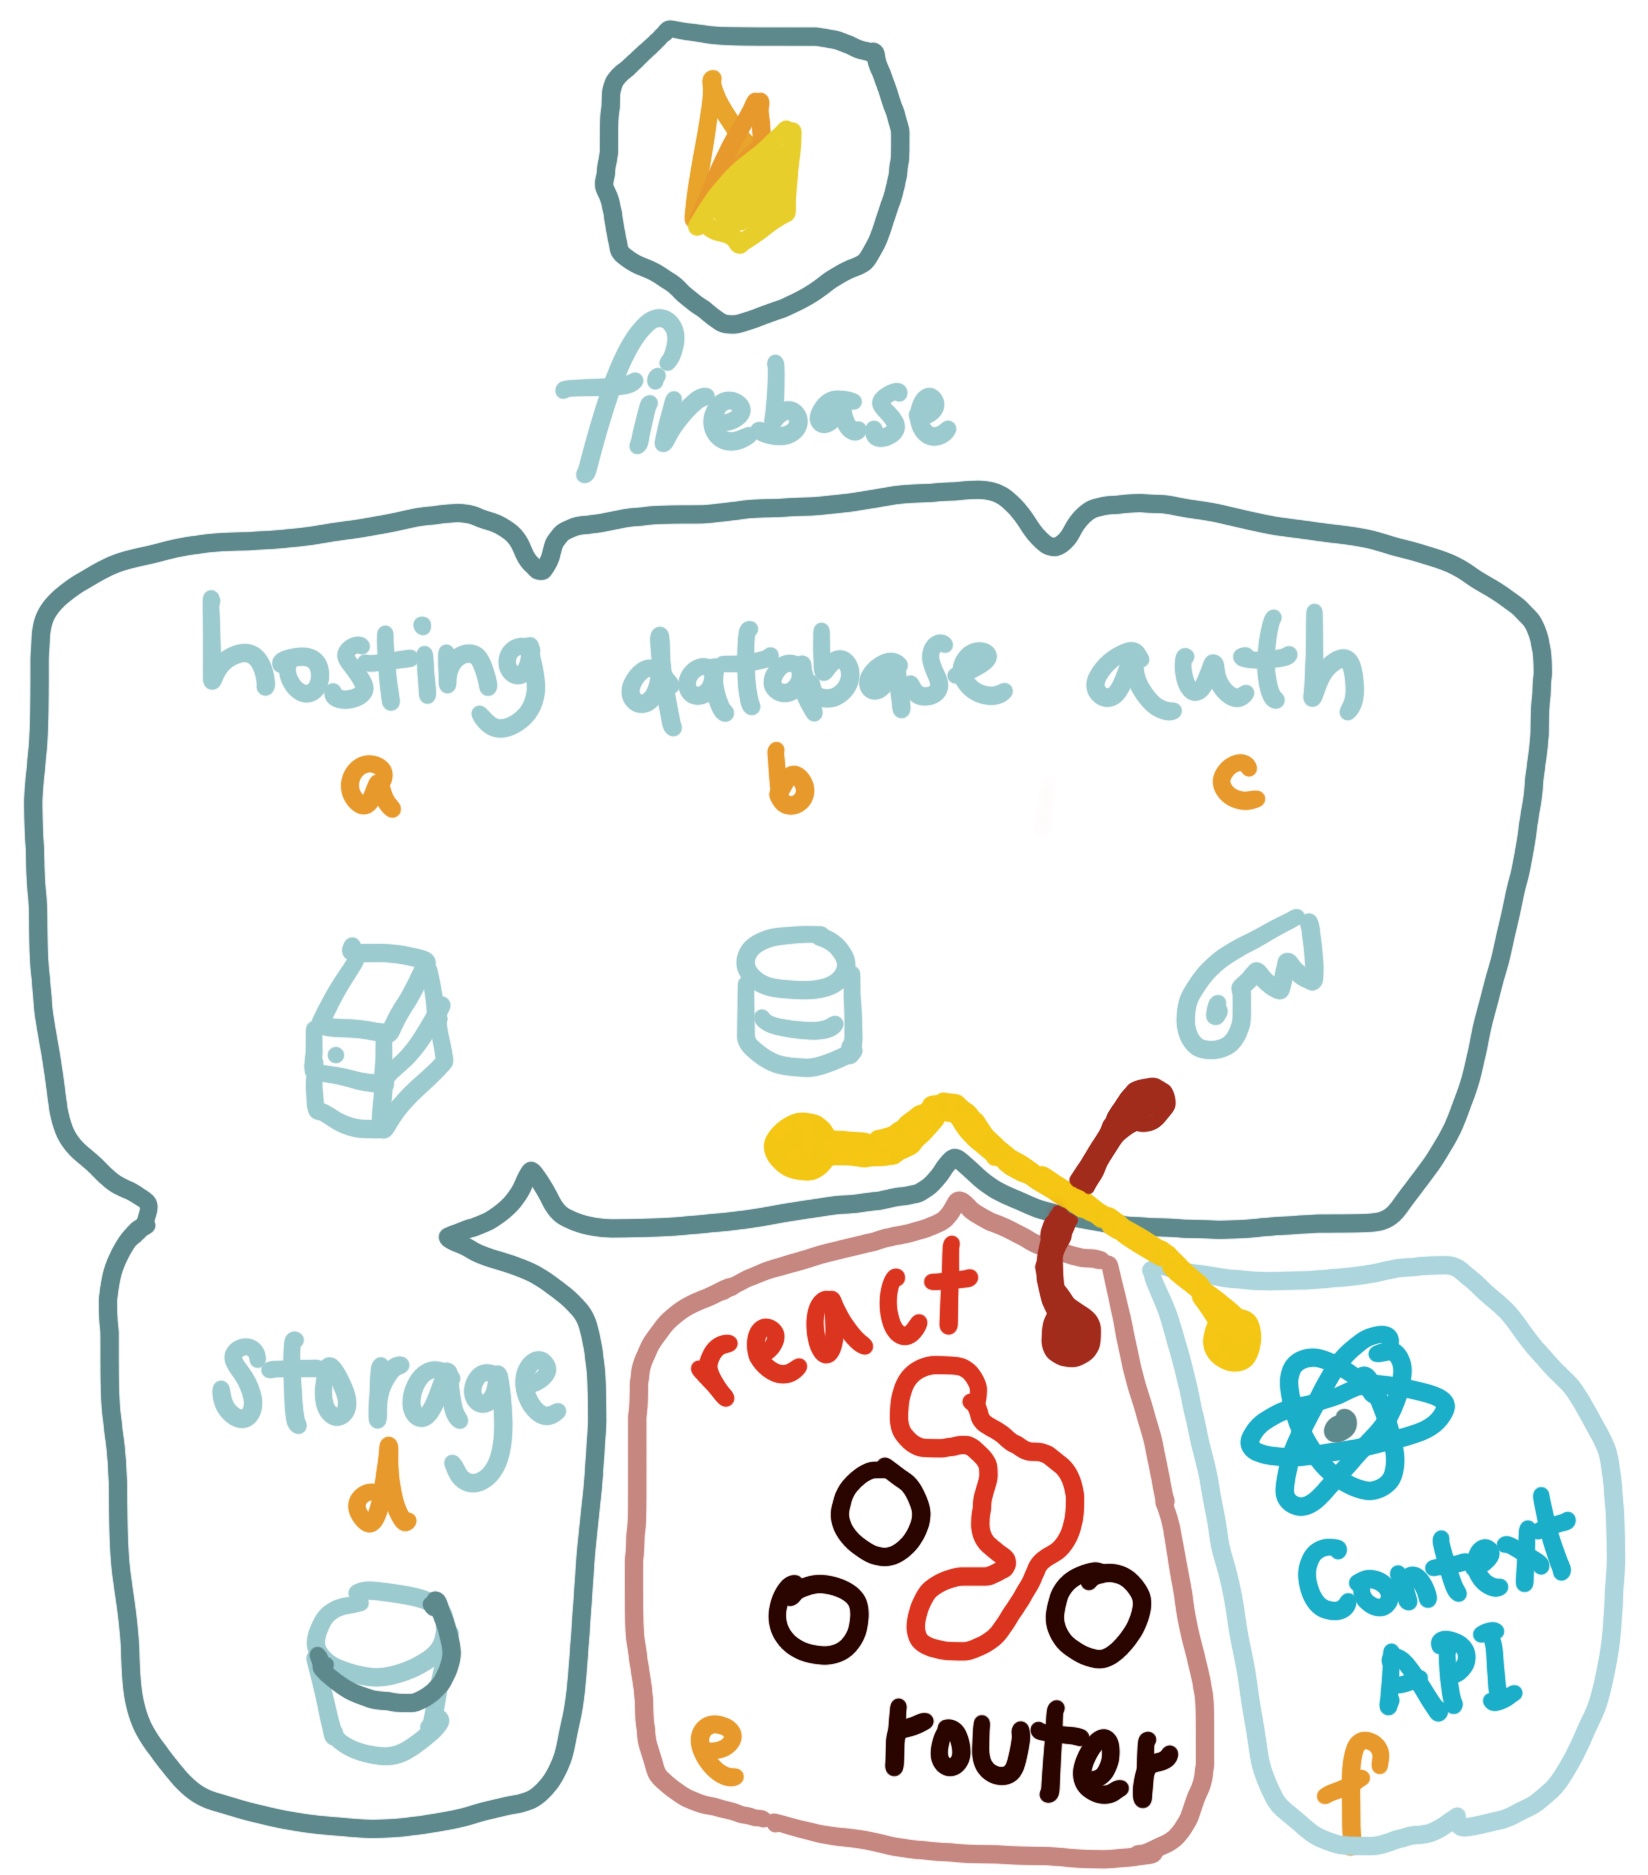 firebase
hosting database auth
a b c
storage
d
react
router
e
Context
API
f